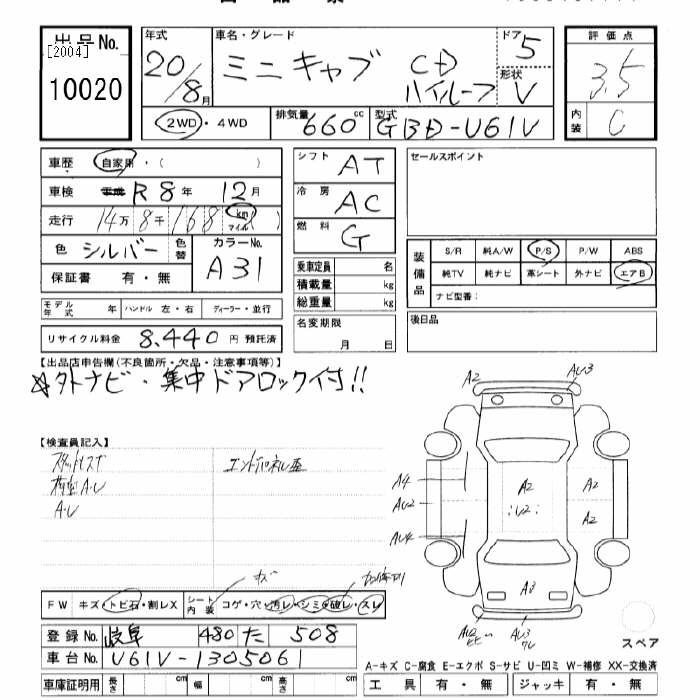 出品No.
[2004]
10020
年式
20/8月
車名・グレード
ミニキャブ CD
ハイルーフ
ドア 5
形状 V
評価点
3.5
内装 C
2WD・4WD
排気量 660 cc
型式 GBD-U61V
車歴 自家用・( )
車検 R8年 12月
走行 14万8千168 km マイル ( )
色 シルバー 色替
カラーNo.
A31
保証書 有・無
モデル年式 年 ハンドル 左・右 ディーラー・並行
リサイクル料金 8,440 円 預託済
シフト AT
冷房 AC
燃料 G
乗車定員 名
積載量 kg
総重量 kg
名変期限
月 日
セールスポイント
装備品
S/R 純A/W P/S P/W ABS
純TV 純ナビ 革シート 外ナビ エアB
ナビ型番:
後日品
【出品店申告欄(不良箇所・欠品・注意事項等)】
☆外ナビ・集中ドアロック付!!
【検査員記入】
A・U
A・U
FW キズ・トビ石・割レX
シート内装 コゲ・穴・汚レ・シミ・破レ・スレ
A2
AU3
A4
AU2
AU4
A2
U2
A2
A2
A3
AU2
AU3
スペア
登録No. 岐阜 480 た 508
車台No. U61V-1305061
車庫証明用 長さ cm 幅 cm 高さ cm
A-キズ C-腐食 E-エクボ S-サビ U-凹ミ W-補修 XX-交換済
工具 有・無 ジャッキ 有・無